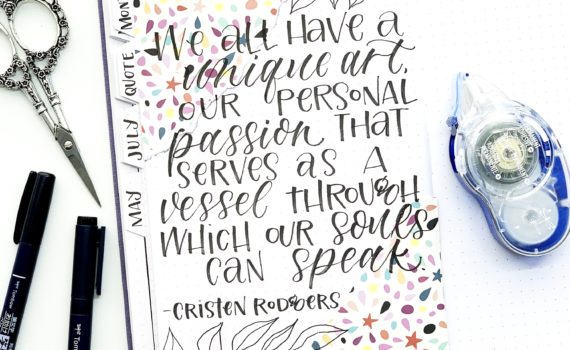 We all have a
unique art,
our personal
passion that
serves as a
vessel through
which our souls
can speak.
-Cristen Rodgers
MON
QUOTE
JULY
MAY
Tombow